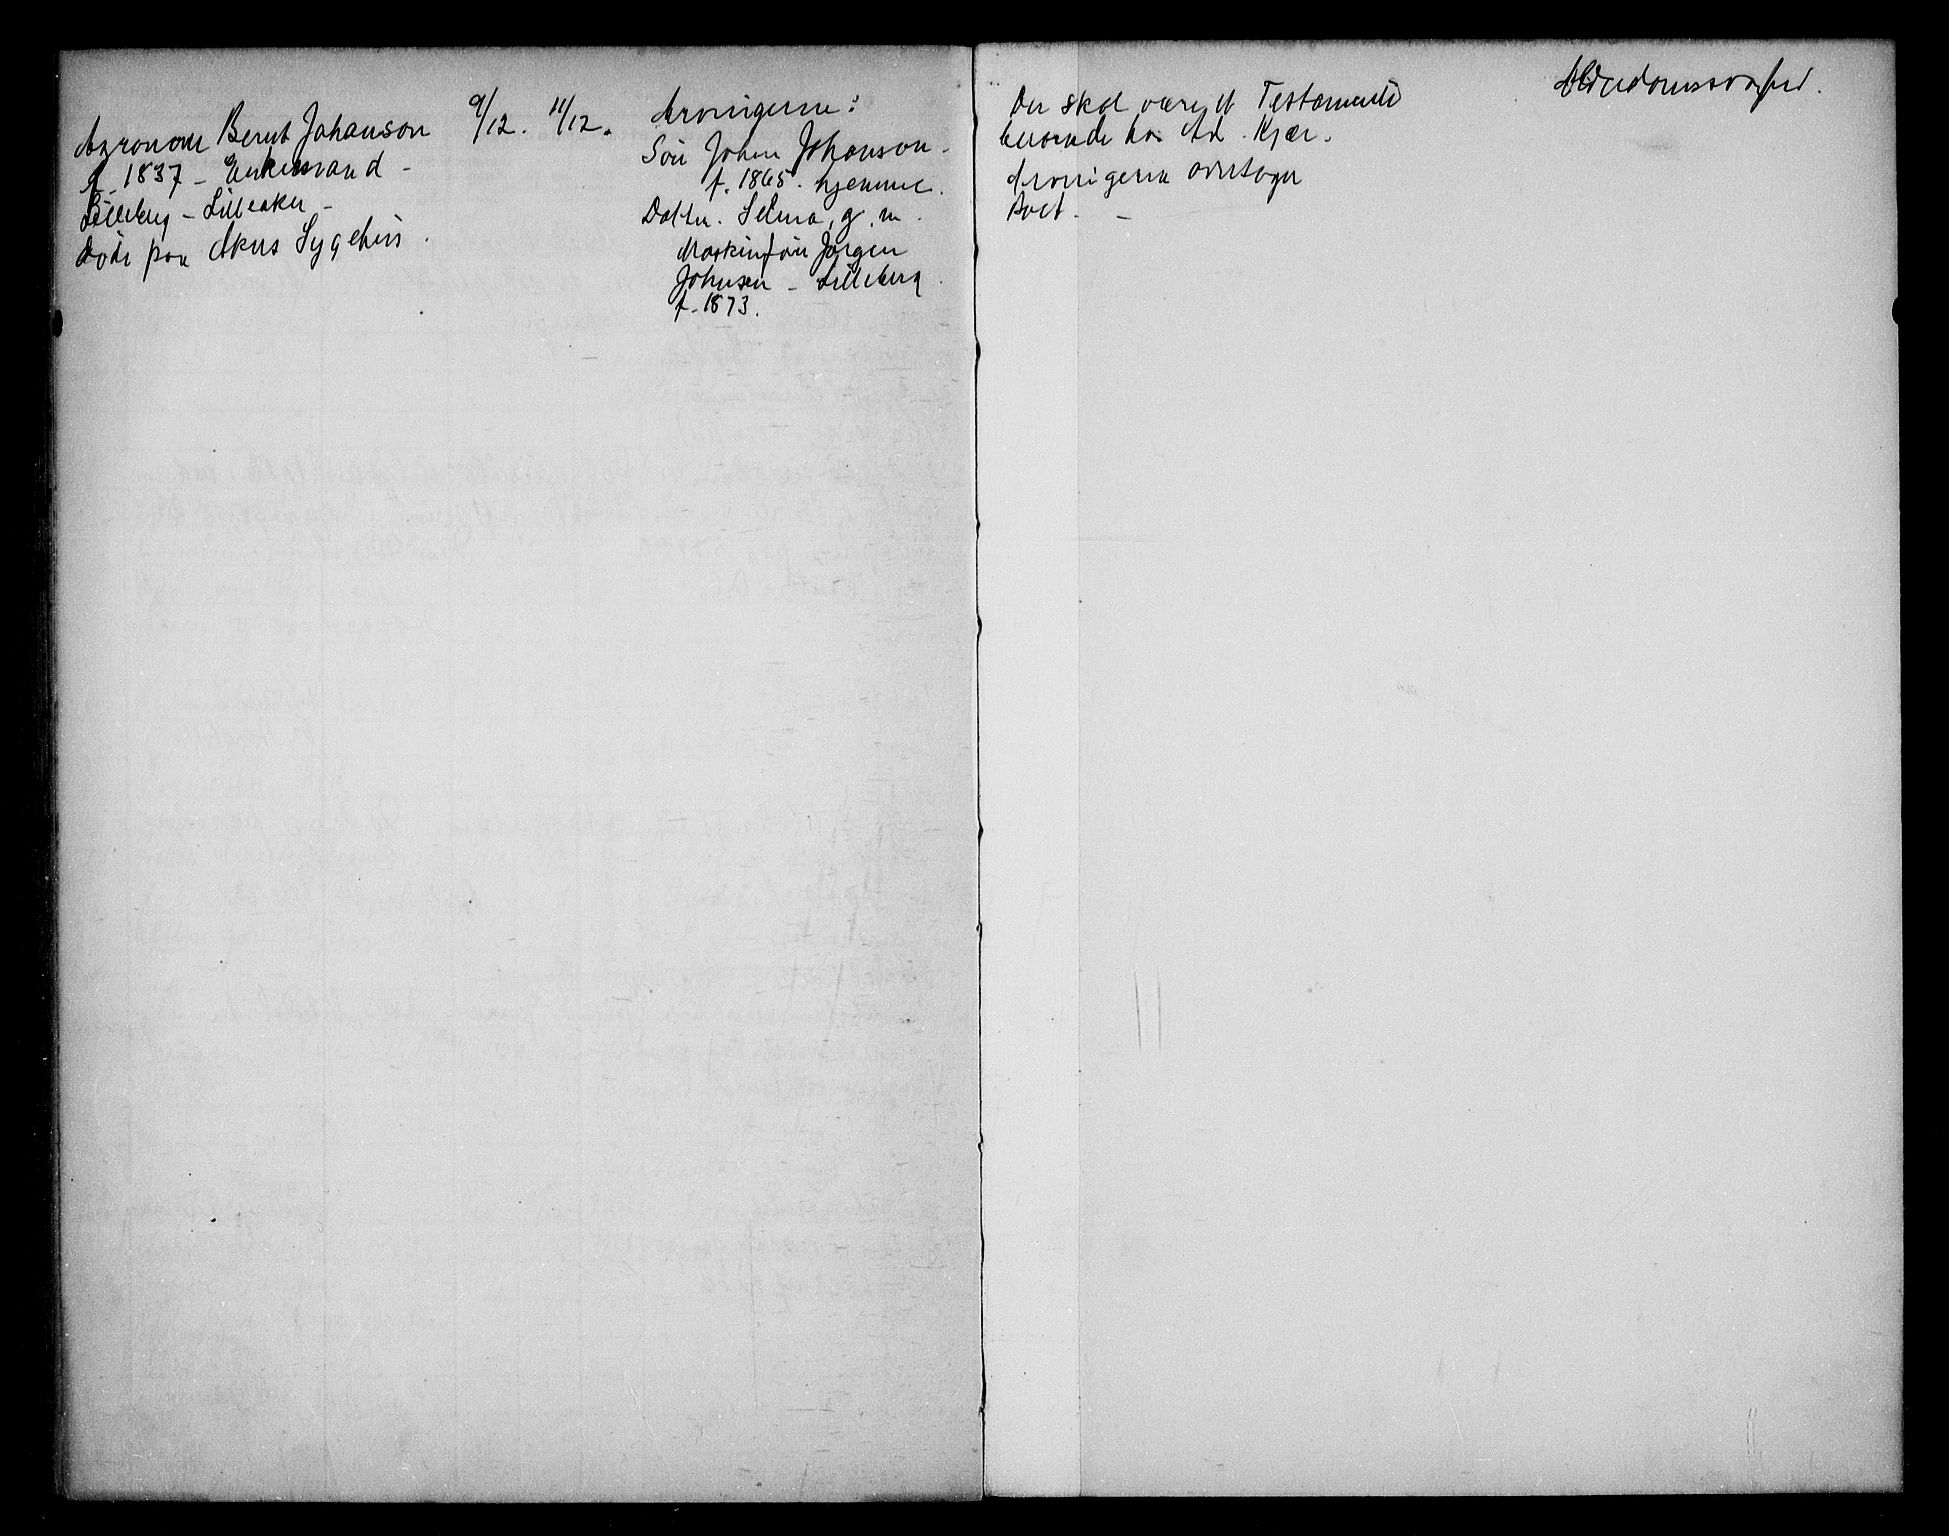 Agronom Bernt Johanson
f. 1837 - Enkemand -
Lilleberg - Lilleaker -
Døde paa Akers Sygehus.
9/12. 11/12.
Arvingerne:
Søn Johan Johanson -
f. 1865. hjemme.
Datter. Selma, g. m.
Maskinfører Jørgen
Johnsen - Lilleberg.
f. 1873.
Der skal være et Testamente
beroende hos Ad. Kjær.
Arvingerne overtager
Boet. -